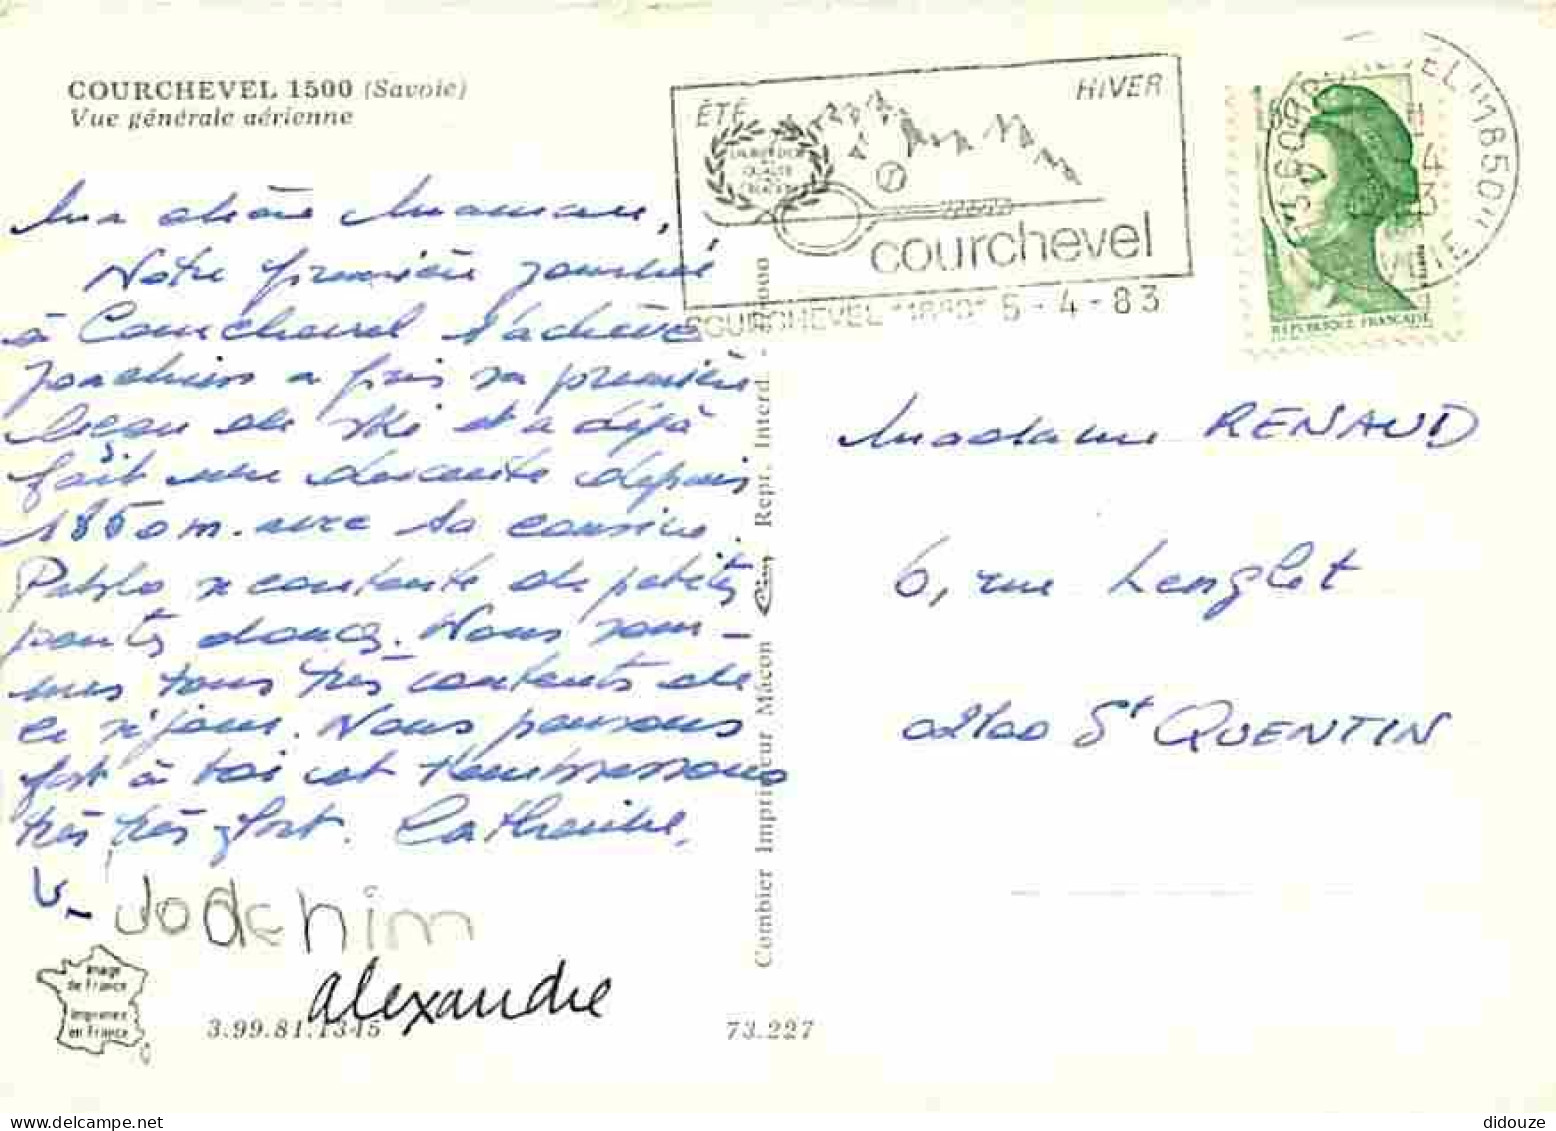 COURCHEVEL 1500 (Savoie)
Vue générale aérienne
ÉTÉ
HIVER
courchevel
COURCHEVEL "1850" 5 - 4 - 83
RÉPUBLIQUE FRANÇAISE
Ma chère Maman,
Notre première journée
à Courchevel s'achève
Joachim a pris sa première
leçon de ski et a déjà
fait une descente depuis
1850m. avec sa cousine.
Pablo se contente de petites
pentes douces. Nous som-
mes tous très contents de
ce séjour. Nous pensons
fort à toi et t'embrassons
très très fort. Catherine,
Joachim
alexandre
Madame RENAUD
6, rue Lenglet
02100 St QUENTIN
Combier Imprimeur Mâcon Cim Repr. Interd.
Image
de France
Imprimée
en France
3.99.81.1345
73.227
didouze